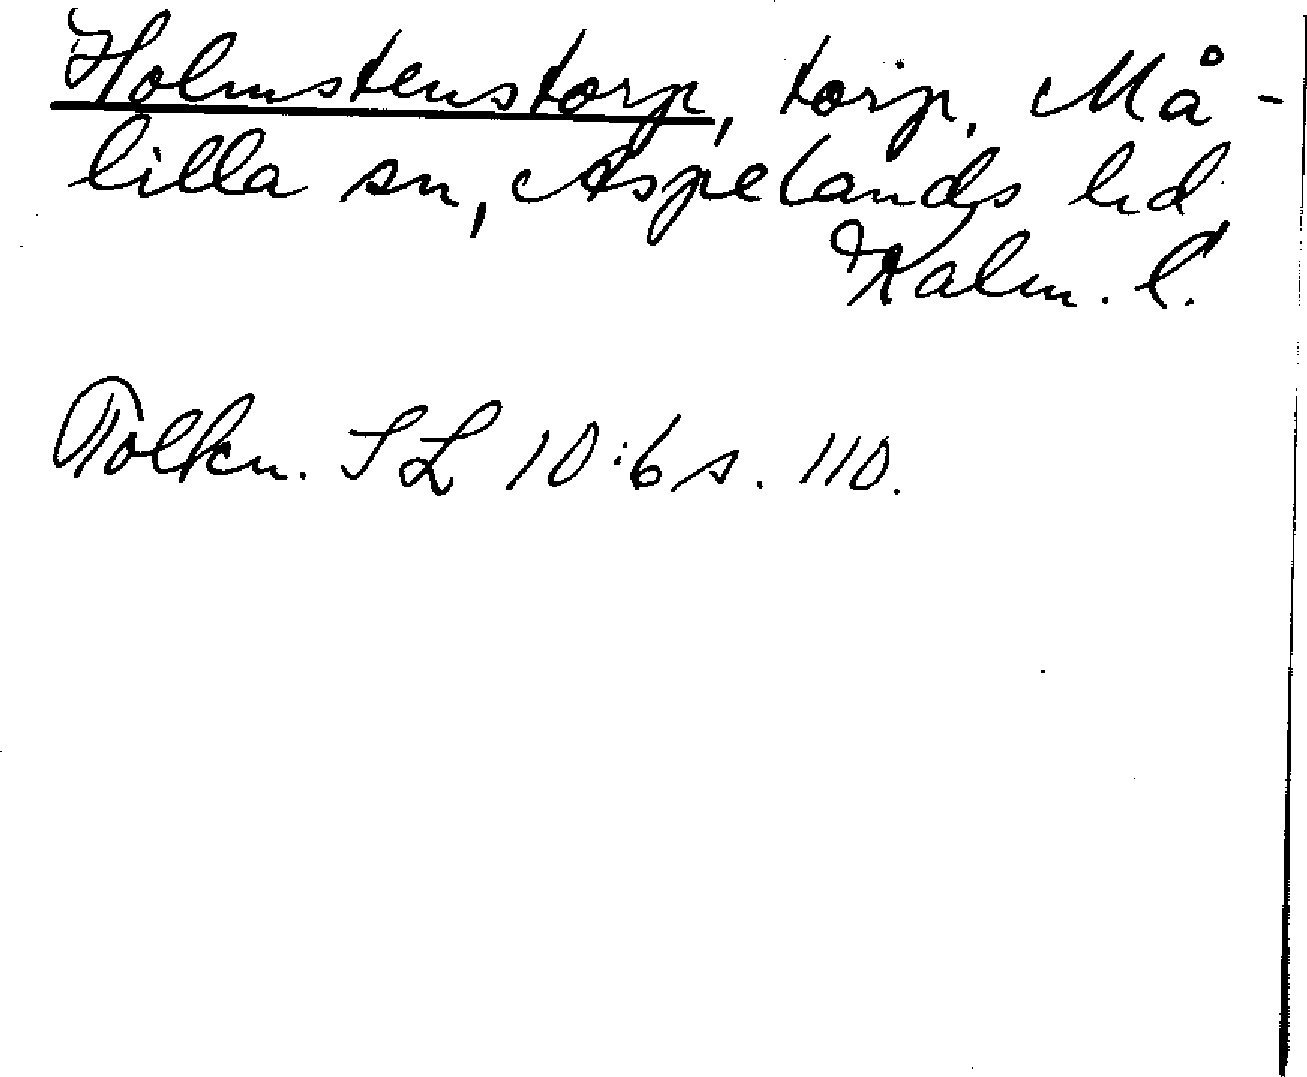 Holmstenstorp, torp, Må-
lilla sn, Aspelands hd,
Kalm. l.
Tolkn. SL 10:6 s. 110.